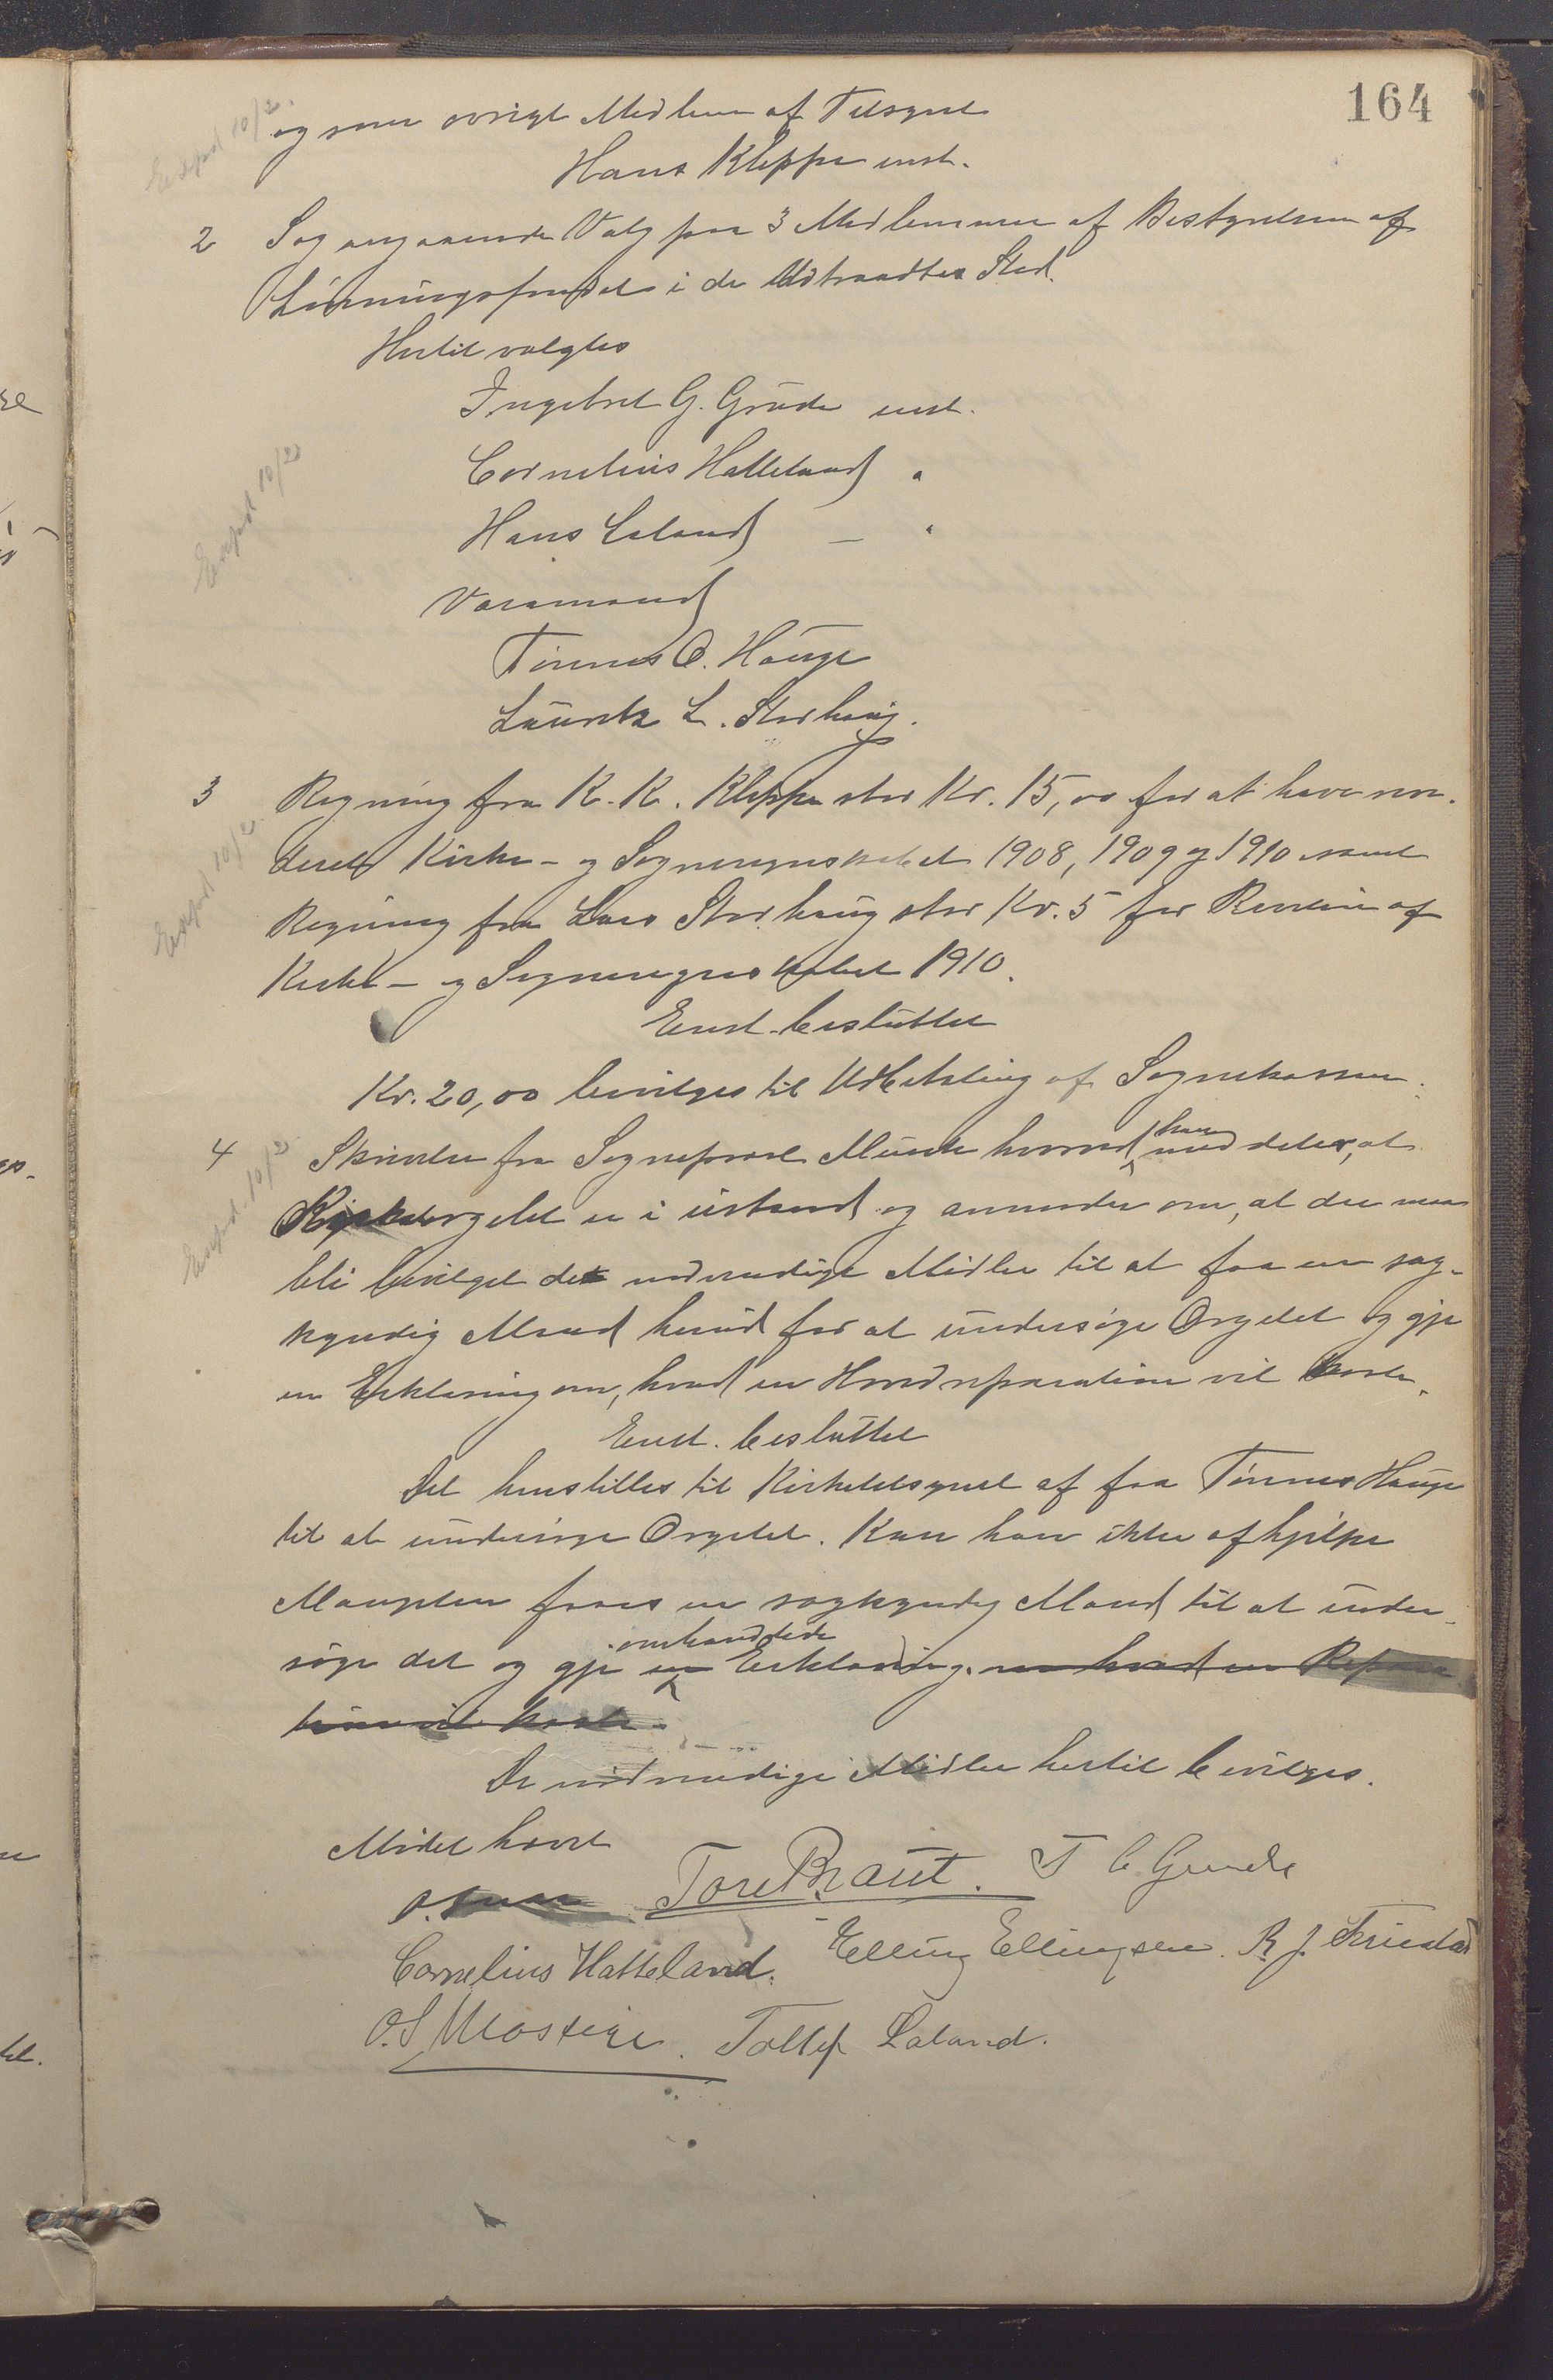 164
og som øvrigt Medlem af Tilsynet
Hans Kleppe enst.
Exped 10/2.
2 Sag angaaende Valg paa 3 Medlemmer af Bestyrelsen af
Lønningsfondet i de Udtraadtes Sted.
Hertil valgtes
Ingebret G. Grude enst.
Cornelius Hatteland "
Hans Laland — "
Exped 10/2
Varamænd
Tønnes O. Hauge
Lauritz L. Storhaug.
3 Regning fra K. K. Kleppe stor Kr. 15,00 for at have revi-
deret Kirke- og Sogneregnskabet 1908, 1909 og 1910 samt
Regning fra Lars Storhaug stor Kr. 5 for Revision af
Kirke- og Sogneregnskabet 1910.
Exped 10/2.
Enst. besluttet
Kr. 20,00 bevilges til Udbetaling af Sognekassen.
4 Skrivelse fra Sogneprest Munch hvorved han meddeler, at
Kirkeorgelet er i ustand og anmoder om, at der maa
bli bevilget de nødvendige Midler til at faa en sag-
kyndig Mand herud for at undersøge Orgelet og gje
en Erklæring om, hvad en Hovedreparation vil koste.
Exped. 10/2.
Enst. besluttet
Det henstilles til Kirketilsynet at faa Tønnes Hauge
til at undersøge Orgelet. Kan han ikke afhjelpe
Manglen faaes en sagkyndig Mand til at under-
søge det og gje en omhandlede Erklæring. om hvad en Repara
tion vil koste.
De nødvendige Midler hertil bevilges.
Mødet hævet
Tore Braut. T C Grude
Cornelius Hatteland. Elling Ellingsen. R. J. Friestad
O. S. Mosteige. Tollef Laland.